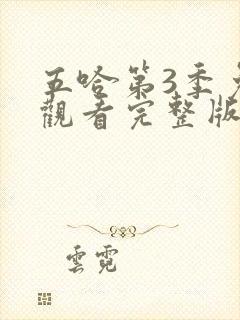 五哈第3季
觀看完整版
雲霓